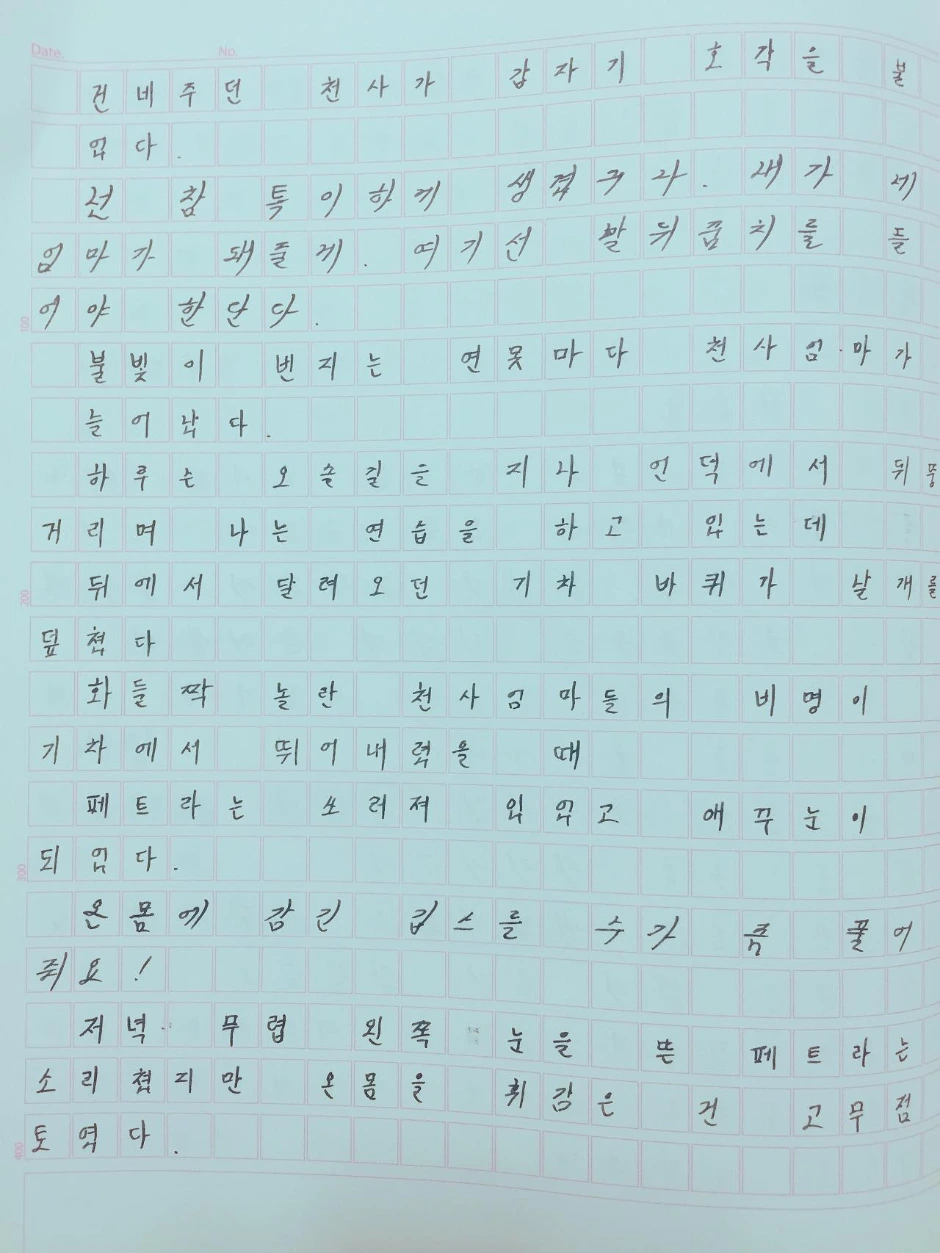 Date. No.
건네주던 천사가 갑자기 호각을 불
었다.
넌 참 특이하게 생겼구나. 내가 네
엄마가 돼줄게. 여기선 발뒤꿈치를 들
100
어야 한단다.
불빛이 번지는 연못마다 천사엄마가
늘어났다.
하루는 오솔길을 지나 언덕에서 뒤뚱
거리며 나는 연습을 하고 있는데
200
뒤에서 달려오던 기차 바퀴가 날개를
덮쳤다
화들짝 놀란 천사엄마들의 비명이
기차에서 뛰어내렸을 때
페트라는 쓰러져 있었고 애꾸눈이
300
되었다.
온몸에 감긴 립스를 누가 좀 풀어
줘요!
저녁 무렵 왼쪽 눈을 뜬 페트라는
소리쳤지만 온몸을 휘감은 건 고무점
400
토였다.